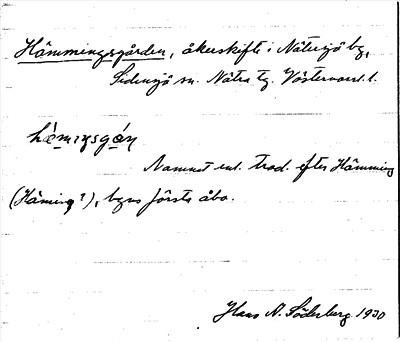 Hämmingsgården, åkerskifte i Nätersjö by,
Sidensjö sn. Nätra tg. Västernorrl. l.
hä̀mıŋsgạ́ṇ
Namnet enl. trad. efter Hämming
(Häming?), byns första åbo.
Hans N. Söderberg 1930